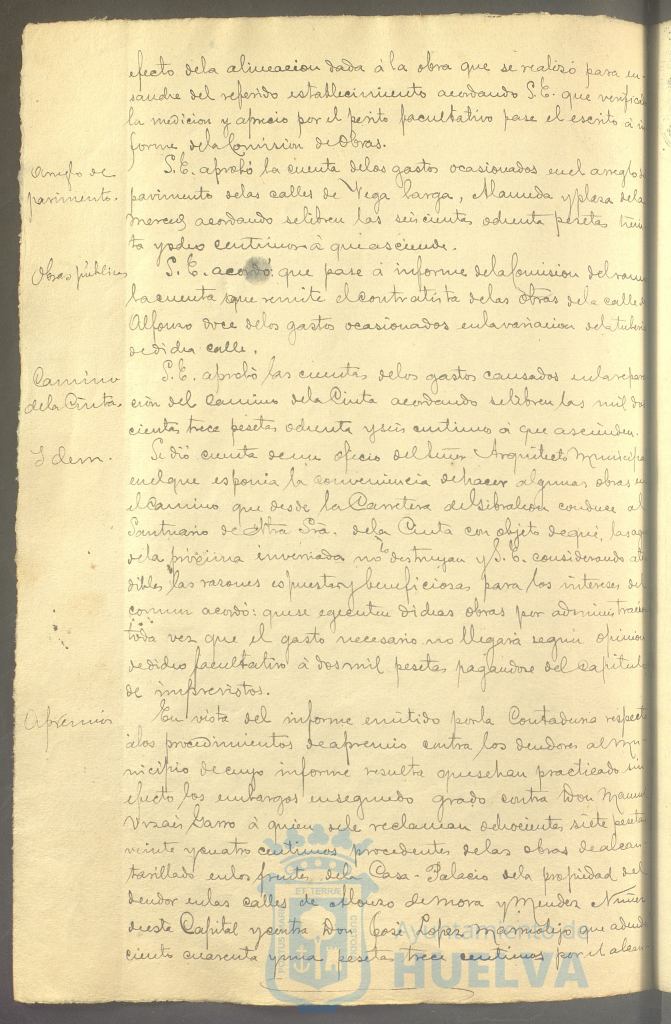 efecto dela alineacion dada á la obra que se realizó para en-
sanche del referido establecimiento acordando S.E. que verifica
la medicion y aprecio por el perito facultativo pase el escrito á in
forme dela Comision de Obras.
Arreglo de
pavimento.
S.E. aprobó la cuenta delos gastos ocasionados en el arreglo de
pavimento delas calles de Vega larga, Alameda y plaza dela
Merced acordando selibren las seiscientas ochenta pesetas trein
ta y dos centimos á que asciende.
Obras públicas
S.E. acordó: que pase á informe dela Comision del ramo
la cuenta que remite el contratista delas obras dela calle
Alfonso doce delos gastos ocasionados enlavariacion dela tuberia
dedicha calle.
Camino
dela Cinta
S.E. aprobó las cuentas delos gastos causados enlarepara
cion del Camino dela Cinta acordando selibren las mil dos
cientas trece pesetas ochenta yseis centimos á que ascienden.
Idem.
Se dió cuenta de un oficio del Señor Arquitecto Municipal
enelque esponia la conveniencia dehacer algunas obras en
el Camino que desde la Carretera deGibraleon conduce al
Santuario de Ntra Sra. dela Cinta con objeto deque, las ag
dela próxima invernada no lo destruyan y S.E. considerando aten
dibles las razones espuestas y beneficiosas para los intereses del
comun acordó: quese egecuten dichas obras por administracion
toda vez que el gasto necesario no llegará segun opinion
dedicho facultativo á dosmil pesetas pagandose del capitulo
de imprevistos.
Apremios
En vista del informe emitido porla Contaduria respecto
álos procedimientos deapremio contra los deudores al Mu-
nicipio decuyo informe resulta quesehan practicado sin
efecto los embargos ensegundo grado contra Don Manuel
Vizcaís Garro á quien sele reclaman ochocientas siete pesetas
veinte ycuatro centimos procedentes delas obras dealcan
tarillado enlos frentes dela Casa-Palacio dela propiedad del
deudor enlas calles de Alonso de Mora y Mendez Nuñez
deesta Capital ycontra Don José Lopez Marmolejo que adeuda
ciento cuarenta yuna pesetas trece centimos por el alcan
PORTUS MARIS ET TERRAE CUSTODIA
Ayuntamiento de
HUELVA